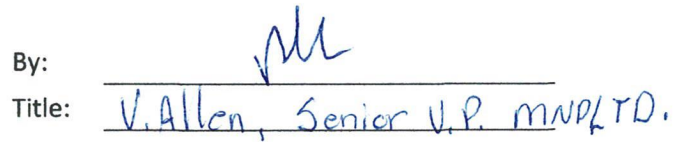 By:
Title: V. Allen, Senior V.P. MNP LTD.